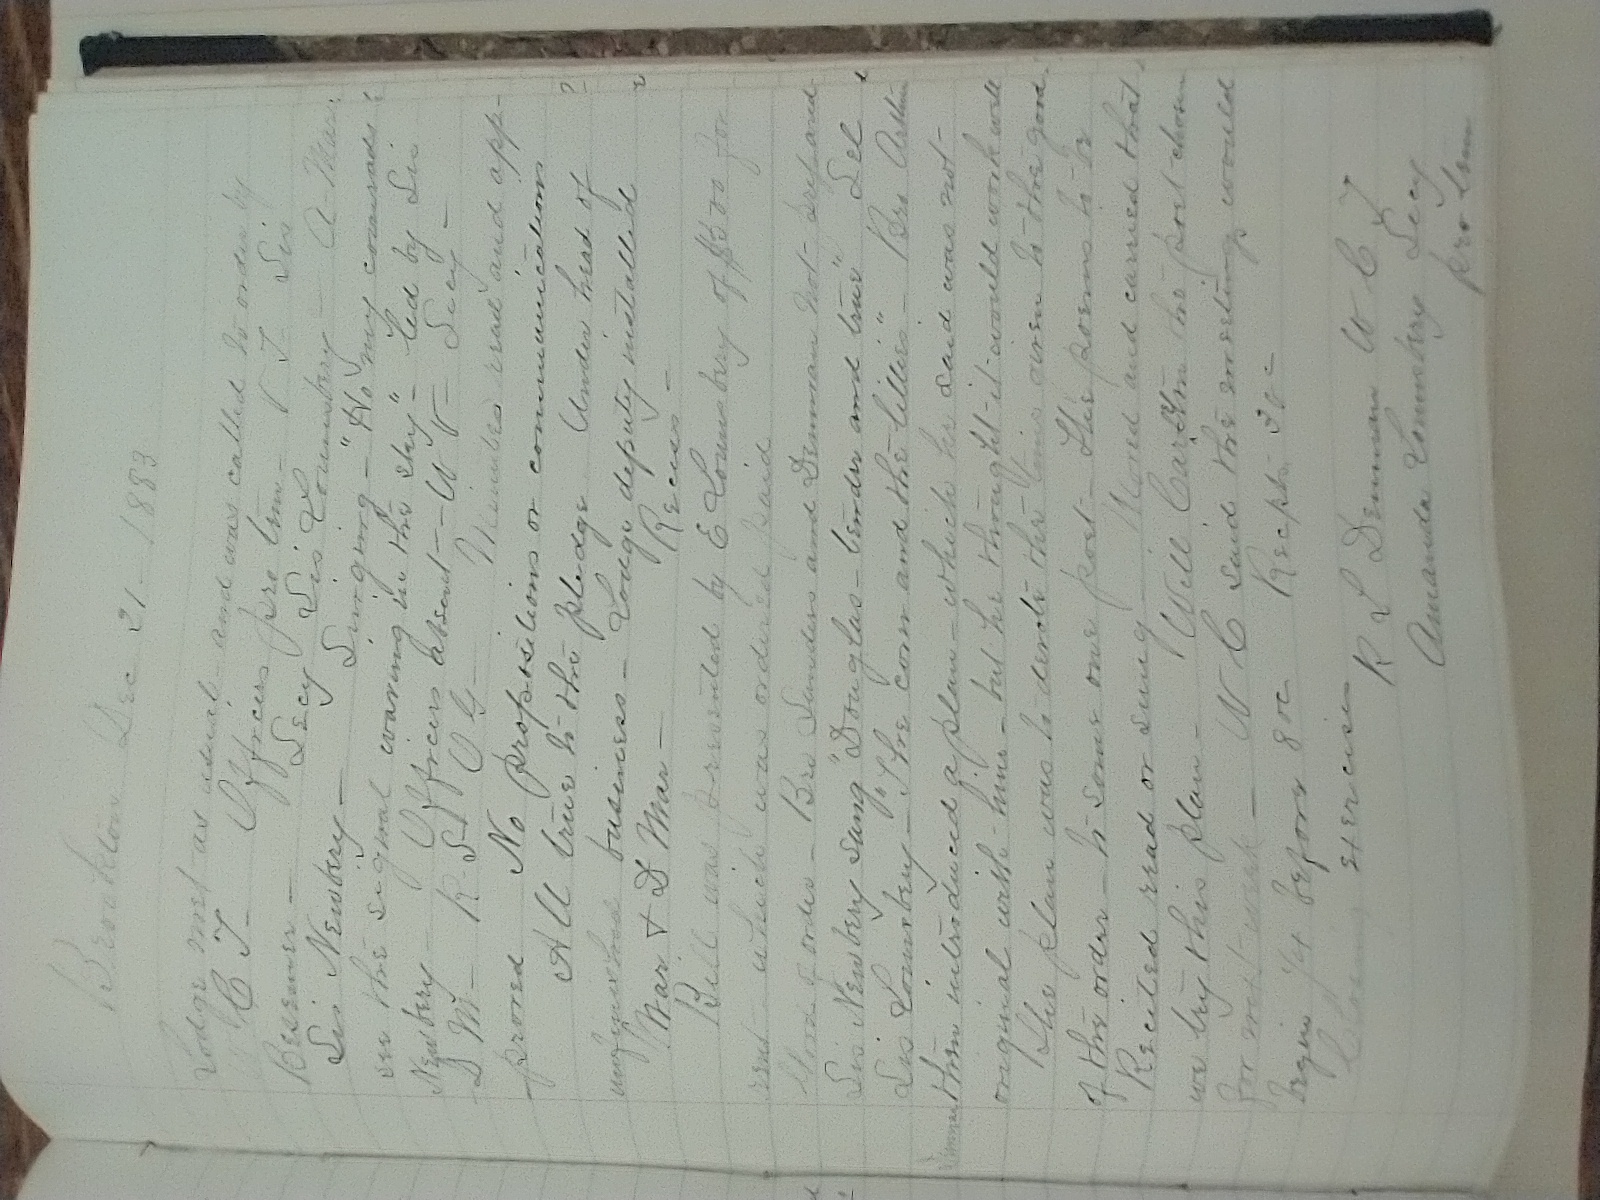 Brookton Dec 21 - 1883
Lodge met as usual - and was called to order by
C T - Officers pro tem - V T - Sis
Besemer - Secy Sis Lounsbery - A - Mar
Sis Newbery - Singing - "Ho my comrads
see the signal waving in the sky" - led by Sis
Newbery - Officers absent - W V - Secy -
D M - R S - O G - Minutes read and app-
-proved No propositions or communications
All true to the pledge Under head of
unfinished business - Lodge deputy installed
Mar & D Mar - Recess -
Bill was presented by E Lounsbery of $500 for
rent - which was ordered paid
Good of order - Bro Sanders and Denman not prepared
Sis Newbery sang "Douglas - tender and true" Sel
Sis Lounsbery - "The corn and the lillies" - Bro Arthur
Denman then introduced a plan - which he said was not
original with him - but he thought it would work well
The plan was to devote the time given to the good
of the order - to some one poet - The poems to be
Recited read or sung - Moved and carried that
we try this plan - Will Carlton the poet chosen
for next week - W C said the meetings would
begin 1/4 before 8 oc Recpts 30c
Closing exercises
R L Denman W C T
Amanda Lounsbery Secy
pro tem